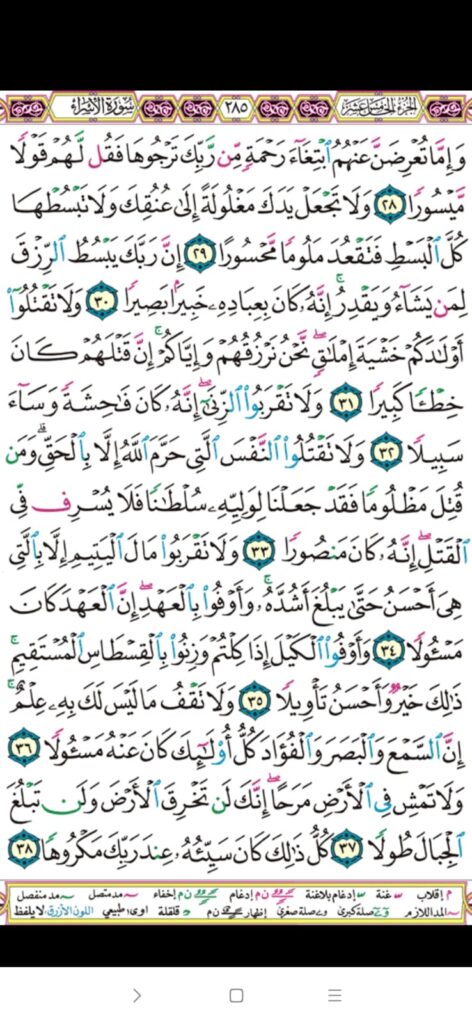 الجزء الخامس عشر ٢٨٥ سورة الإسراء
وَإِمَّا تُعْرِضَنَّ عَنْهُمُ ٱبْتِغَآءَ رَحْمَةٍ مِّن رَّبِّكَ تَرْجُوهَا فَقُل لَّهُمْ قَوْلًا
مَّيْسُورًا ٢٨ وَلَا تَجْعَلْ يَدَكَ مَغْلُولَةً إِلَىٰ عُنُقِكَ وَلَا تَبْسُطْهَا
كُلَّ ٱلْبَسْطِ فَتَقْعُدَ مَلُومًا مَّحْسُورًا ٢٩ إِنَّ رَبَّكَ يَبْسُطُ ٱلرِّزْقَ
لِمَن يَشَآءُ وَيَقْدِرُ ۚ إِنَّهُۥ كَانَ بِعِبَادِهِۦ خَبِيرًۢا بَصِيرًا ٣٠ وَلَا تَقْتُلُوٓا۟
أَوْلَٰدَكُمْ خَشْيَةَ إِمْلَٰقٍ ۖ نَّحْنُ نَرْزُقُهُمْ وَإِيَّاكُمْ ۚ إِنَّ قَتْلَهُمْ كَانَ
خِطْـًٔا كَبِيرًا ٣١ وَلَا تَقْرَبُوا۟ ٱلزِّنَىٰٓ ۖ إِنَّهُۥ كَانَ فَٰحِشَةً وَسَآءَ
سَبِيلًا ٣٢ وَلَا تَقْتُلُوا۟ ٱلنَّفْسَ ٱلَّتِى حَرَّمَ ٱللَّهُ إِلَّا بِٱلْحَقِّ ۗ وَمَن
قُتِلَ مَظْلُومًا فَقَدْ جَعَلْنَا لِوَلِيِّهِۦ سُلْطَٰنًا فَلَا يُسْرِف فِّى
ٱلْقَتْلِ ۖ إِنَّهُۥ كَانَ مَنصُورًا ٣٣ وَلَا تَقْرَبُوا۟ مَالَ ٱلْيَتِيمِ إِلَّا بِٱلَّتِى
هِىَ أَحْسَنُ حَتَّىٰ يَبْلُغَ أَشُدَّهُۥ ۚ وَأَوْفُوا۟ بِٱلْعَهْدِ ۖ إِنَّ ٱلْعَهْدَ كَانَ
مَسْـُٔولًا ٣٤ وَأَوْفُوا۟ ٱلْكَيْلَ إِذَا كِلْتُمْ وَزِنُوا۟ بِٱلْقِسْطَاسِ ٱلْمُسْتَقِيمِ ۚ
ذَٰلِكَ خَيْرٌ وَأَحْسَنُ تَأْوِيلًا ٣٥ وَلَا تَقْفُ مَا لَيْسَ لَكَ بِهِۦ عِلْمٌ ۚ
إِنَّ ٱلسَّمْعَ وَٱلْبَصَرَ وَٱلْفُؤَادَ كُلُّ أُو۟لَٰٓئِكَ كَانَ عَنْهُ مَسْـُٔولًا ٣٦
وَلَا تَمْشِ فِى ٱلْأَرْضِ مَرَحًا ۖ إِنَّكَ لَن تَخْرِقَ ٱلْأَرْضَ وَلَن تَبْلُغَ
ٱلْجِبَالَ طُولًا ٣٧ كُلُّ ذَٰلِكَ كَانَ سَيِّئُهُۥ عِندَ رَبِّكَ مَكْرُوهًا ٣٨
م إقلاب غنة إدغام بلا غنة ن م إدغام ن م إخفاء مد متصل مد منفصل
المد اللازم صلة كبرى صلة صغرى إظهار ن م قلقلة اوى: طبيعي اللون الأزرق لا يلفظ